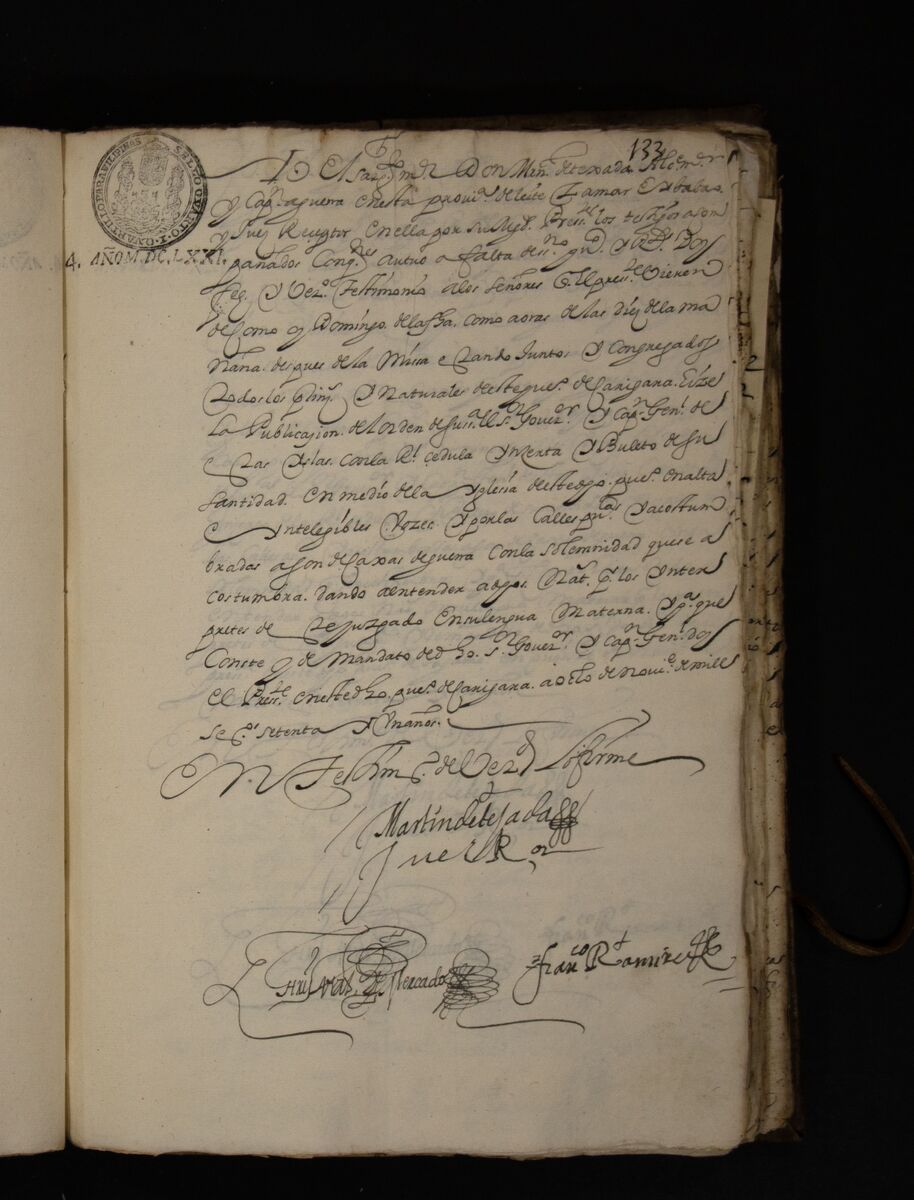 133
SELLO QVARTO I QVARTILLO PARA FILIPINAS
4. AÑO M.DC.LXXI.
Yo El sarg.to m.r Don Min. de texada Alce m.r
y Cap.n aguerra enesta proui.a de leite Zamar E ybabao
y Juez Receptor enella por su Mgd. Press.te los testigos ason
panados Con q.nes autuo a falta de ss.no pu.o y R.l Doy
fee. y Ver.o testimonio a los señores q. el press.te Vieren
de Como oy Domingo. de la fha. como a oras de las diez de la ma
ñana. despues de la Missa estando Juntos y Congregados
todos los prin.s y Naturales deste pueo. de Carigara. hize
la Publicasion. de la orden de su ss.a el s.or Gouer.or y Cap.n Gen.l de
estas yslas. con la R.l cedula ynserta y Buleto de su
santidad. en medio de la yglesia deste dho. pueo. en alta
e yntelegibles vozes y por las Calles pu.as y acostum
bradas a son de Caxas de guerra con la solemnidad que se a
costumbra. dando aentender a dhos. Nat.s por los ynter
pretes de este juzgado en su lengua Materna. y p.a que
Conste y de mandato de dho. s.or Gouer.or y Cap.n Gen.l doy
el Press.te en este dho. pueo. de Carigara. a ocho de Nou.e de mill
se s.s setenta y Un años.
En testim.o de Verd.d lo firme
Martin de tejada
Juez R.or
Mercado
fran.co Ramires